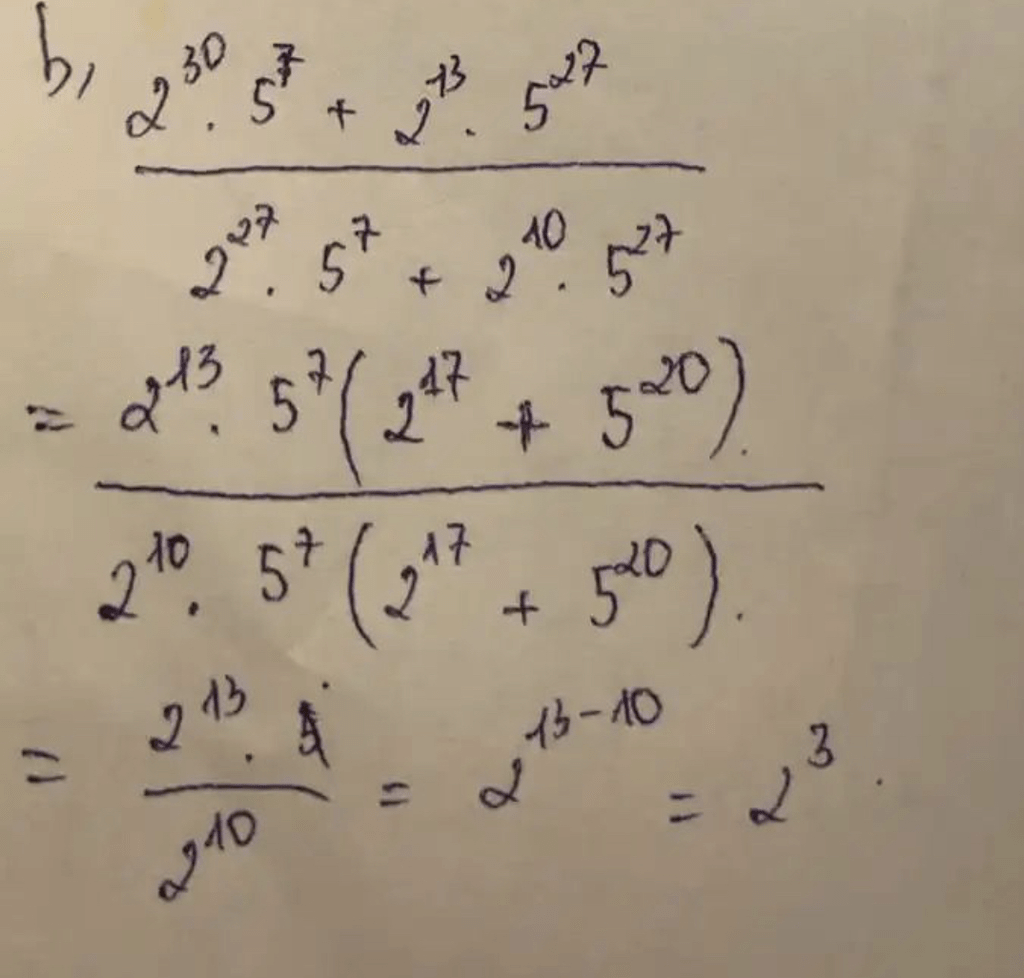 b, 2^30 . 5^7 + 2^13 . 5^27
2^27 . 5^7 + 2^10 . 5^27
= 2^13 . 5^7 (2^17 + 5^20).
2^10 . 5^7 (2^17 + 5^20).
= 2^13 . = 2^13-10 = 2^3 .
2^10